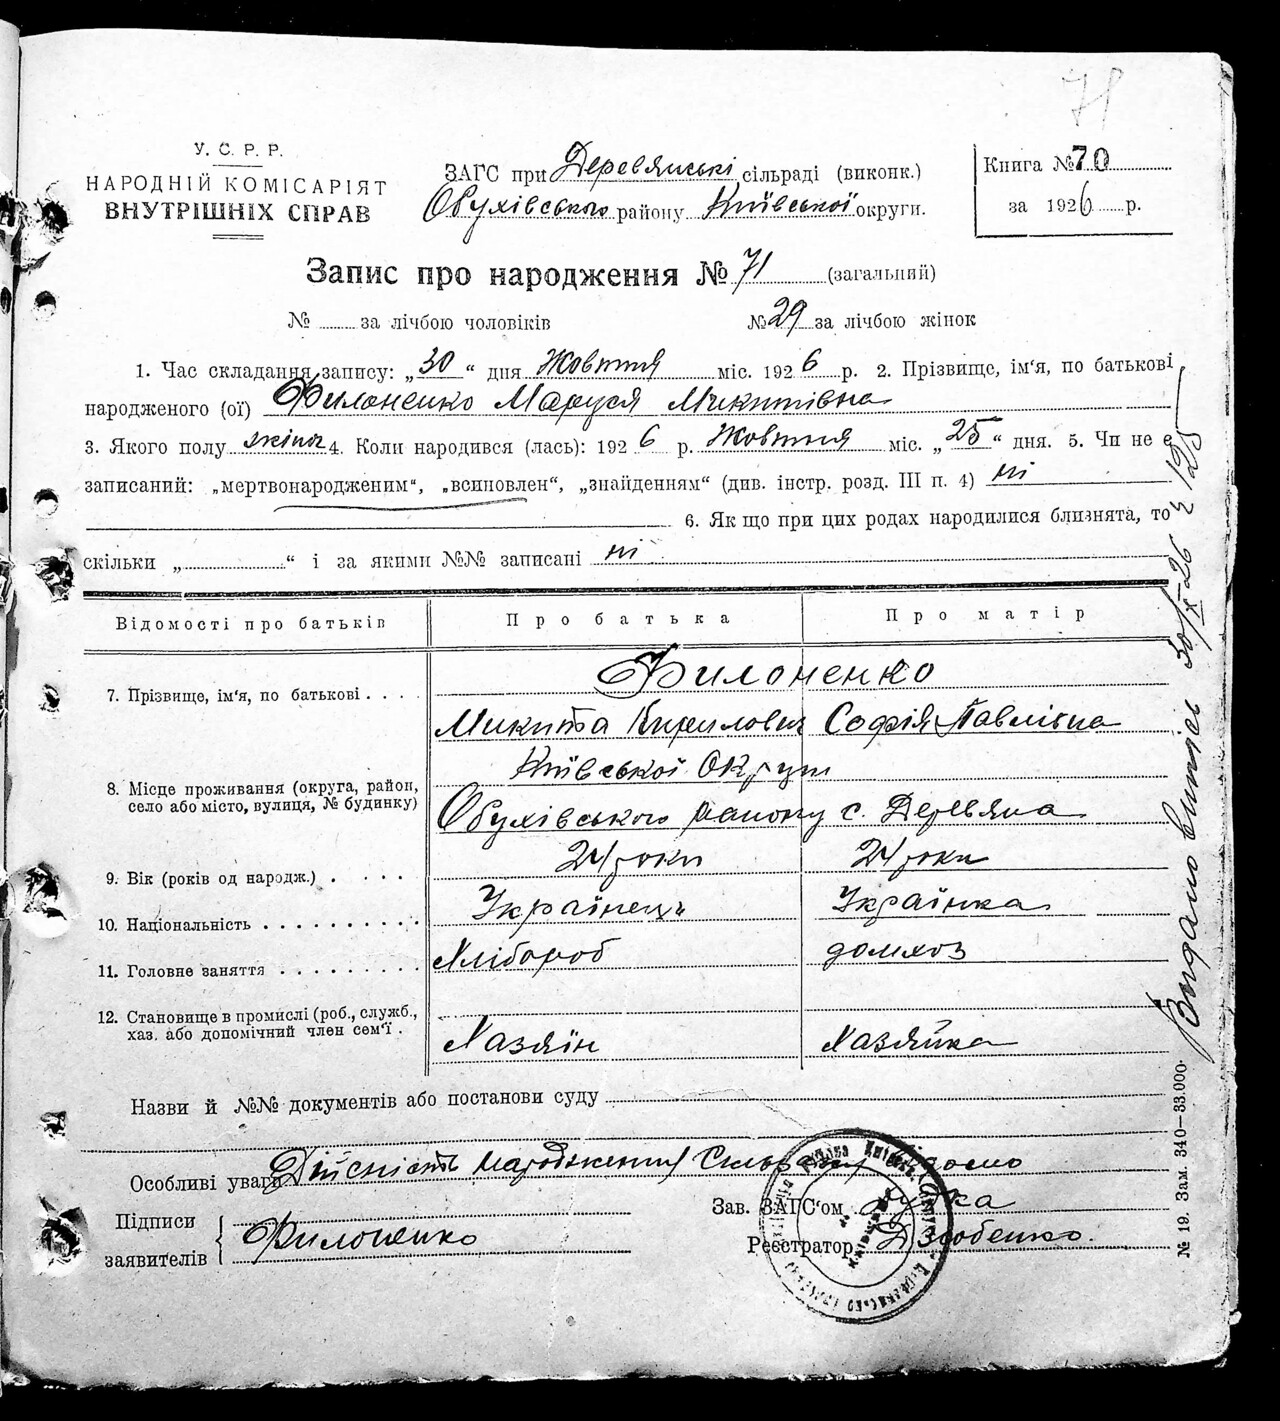 71
У. С. Р. Р.
НАРОДНІЙ КОМІСАРІЯТ
ВНУТРІШНІХ СПРАВ
ЗАГС при Деревянські сільраді (виконк.)
Обухівського району Київської округи.
Книга № 70
за 1926 р.
Запис про народження № 71 (загальний)
№ за лічбою чоловіків № 29 за лічбою жінок
1. Час складання запису: „30“ дня Жовтня міс. 1926 р. 2. Прізвище, ім'я, по батькові
народженого (ої) Филоненко Маруся Микитівна
3. Якого полу жіноч 4. Коли народився (лась): 1926 р. Жовтня міс. „25“ дня. 5. Чи не є
записаний: „мертвонародженим“, „всиновлен“, „знайденням“ (див. інстр. розд. III п. 4) ні
6. Як що при цих родах народилися близнята, то
скільки „ “ і за якими №№ записані ні
Відомості про батьків Про батька Про матір
7. Прізвище, ім'я, по батькові . . . . Филоненко
Микита Кирилович Софія Павлівна
8. Місце проживання (округа, район, село або місто, вулиця, № будинку) Київської Округи
Обухівського району с. Деревяна
9. Вік (років од народж.) . . . . . 24 роки 24 роки
10. Національність . . . . . . . . . . Українець Українка
11. Головне заняття . . . . . . . . . Хлібороб домхоз
12. Становище в промислі (роб., служб., хаз. або допомічний член сем'ї . Хазяїн Хазяйка
Назви й №№ документів або постанови суду
Особливі уваги Дійсність народження Сільраді відомо
Підписи
заявителів
Филоненко
Зав. ЗАГС'ом
Реєстратор Дзюбенко.
Видано витяг 30/X-26
№ 19. Зам. 340—33.000